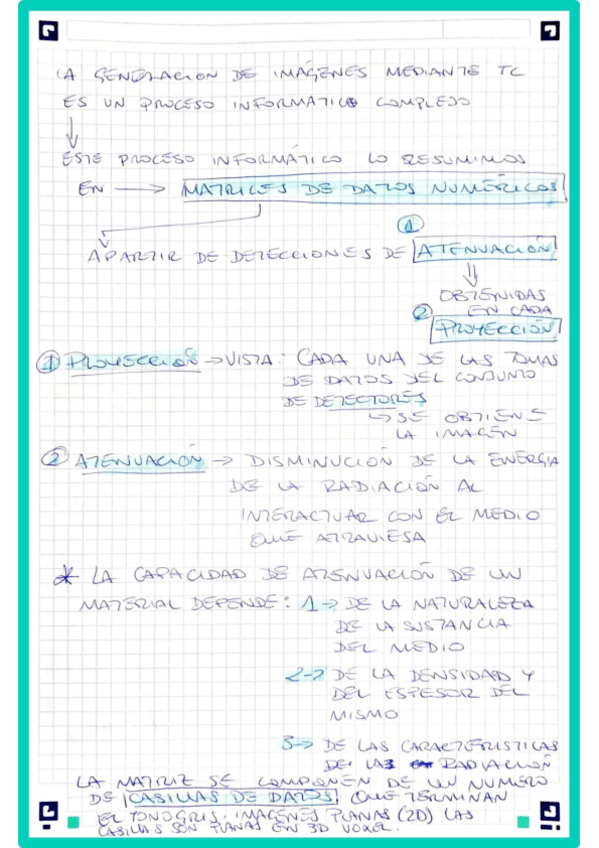 LA GENERACION DE IMÁGENES MEDIANTE TC
ES UN PROCESO INFORMATICO COMPLEJO
↓
ESTE PROCESO INFORMÁTICO LO RESUMIMOS
EN → MATRICES DE DATOS NUMÉRICOS
①
A PARTIR DE DETECCIONES DE ATENUACIÓN
⇓
OBTENIDAS
EN CADA
② PROYECCIÓN
① PROYECCIÓN → VISTA: CADA UNA DE LAS TOMAS
DE DATOS DEL CONJUNTO
DE DETECTORES
↳ SE OBTIENE
LA IMAGEN
② ATENUACIÓN → DISMINUCIÓN DE LA ENERGIA
DE LA RADIACIÓN AL
INTERACTUAR CON EL MEDIO
QUE ATRAVIESA
* LA CAPACIDAD DE ATENUACIÓN DE UN
MATERIAL DEPENDE: 1→ DE LA NATURALEZA
DE LA SUSTANCIA
DEL MEDIO
2→ DE LA DENSIDAD Y
DEL ESPESOR DEL
MISMO
3→ DE LAS CARACTERISTICAS
DE LAS RADIACIÓN
LA MATRIZ SE COMPONEN DE UN NUMERO
DE CASILLAS DE DATOS QUE TERMINAN
EL TONO GRIS. IMAGENES PLANAS (2D) LAS
CASILLAS SON PLANAS EN 3D VOXEL.